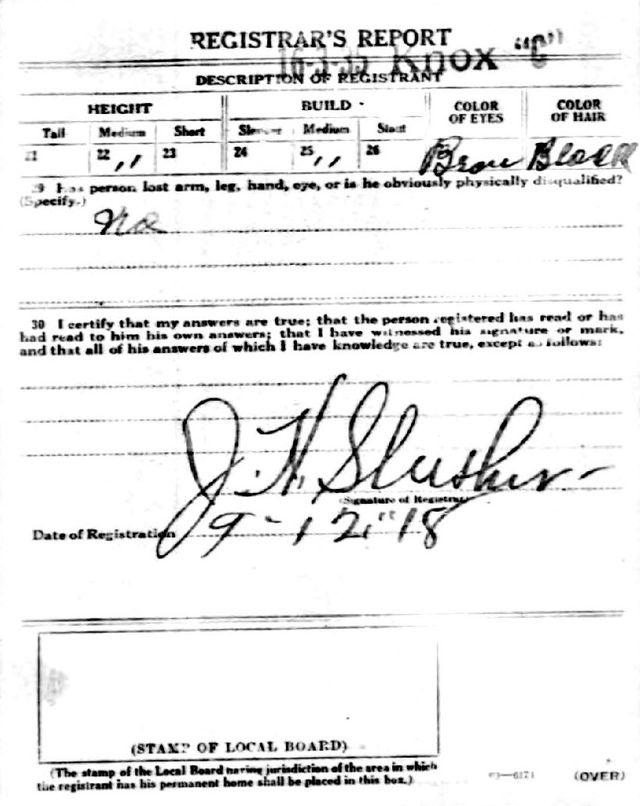 REGISTRAR'S REPORT
16-3-35 Knox "C"
DESCRIPTION OF REGISTRANT
HEIGHT BUILD COLOR OF EYES COLOR OF HAIR
Tall Medium Short Slender Medium Stout
21 22 ,, 23 24 25 ,, 26 Brow Black
29 Has person lost arm, leg, hand, eye, or is he obviously physically disqualified?
(Specify.)
No
30 I certify that my answers are true; that the person registered has read or has
had read to him his own answers; that I have witnessed his signature or mark,
and that all of his answers of which I have knowledge are true, except as follows:
J. H. Slusher
(Signature of Registrar)
Date of Registration 9-12"18
(STAMP OF LOCAL BOARD)
(The stamp of the Local Board having jurisdiction of the area in which
the registrant has his permanent home shall be placed in this box.)
03—6171 (OVER)